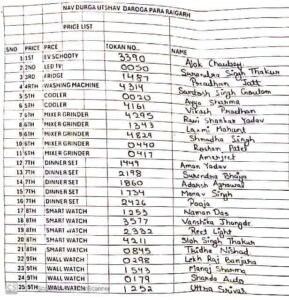 NAV DURGA UTSHAV DAROGA PARA RAIGARH
PRICE LIST
SNO PRICE PRCE TOKAN NO. NAME
1 1ST EV SCHOOTY 3390 Alok Chauhay
2 2ND LED TV 0050 Surendra Singh Thakur
3 3RD FRIDGE 1487 Pradhan Jatt
4 4RTH WASHING MACHINE 4314 Santosh Singh Goutam
5 5TH COOLER 0020 Ayya Sharma
6 5TH COOLER 4161 Vikash Pradhan
7 6TH MIXER GRINDER 4295 Ravi Shankar Yadav
8 6TH MIXER GRINDER 1343 Laxmi Mahant
9 6TH MIXER GRINDER 4829 Shraddha Singh
10 6TH MIXER GRINDER 0440 Roshan Patel
11 6TH MIXER GRINDER 0417 Amarjeet
12 7TH DINNER SET 1449 Aman Yadav
13 7TH DINNER SET 2198 Surendra Bhaijya
14 7TH DINNER SET 1860 Adarsh Agrawal
15 7TH DINNER SET 1734 Manav Singh
16 7TH DINNER SET 2426 Pooja
17 8TH SMART WATCH 1253 Naman Das
18 8TH SMART WATCH 3577 Vanshika Jhangde
19 8TH SMART WATCH 2332 Red Light
20 8TH SMART WATCH 4211 Singh Thakur
21 8TH SMART WATCH 0845 Nishad
22 9TH WALL WATCH 0298 Lekh Raj Banjara
23 9TH WALL WATCH 1543 Manoj Sharma
24 9TH WALL WATCH 0179 Sharda Auto
25 9TH WALL WATCH 1252 Uttra Sriwas
CS Scanner